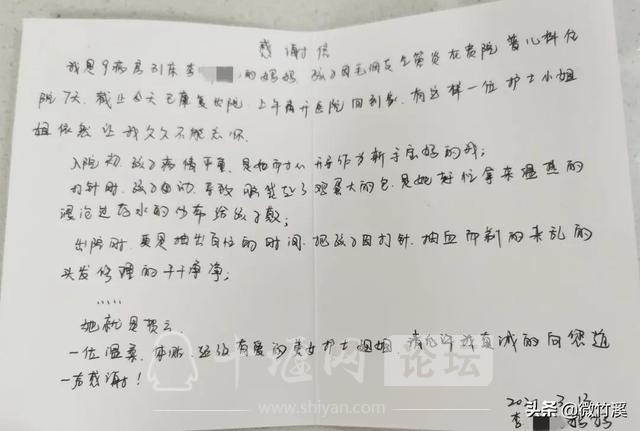 感谢信
我是9病房31床李 的妈妈,孩子因毛细支气管炎在贵院普儿科住
院7天.截止今天已康复出院.上午离开医院回到家.有这样一位护士小姐
姐依然让我久久不能忘怀.
入院初.孩子病情严重.是她 开导作为新手宝妈的我;
打针时.孩子 动.导致 了鸡蛋大的包.是她 拿来温热的
浸 过 水的纱布给孩子敷;
出院时.更是抽出百忙的时间.把孩子因打针.抽血 的杂乱的
头发修理的干干净净;
……
她就是贺云.
一位温柔. 有爱的美女护士姐姐.请允许我真诚的向您道
一声感谢!
十堰网 论坛
www.shiyan.com
李 妈妈
头条 @微竹溪